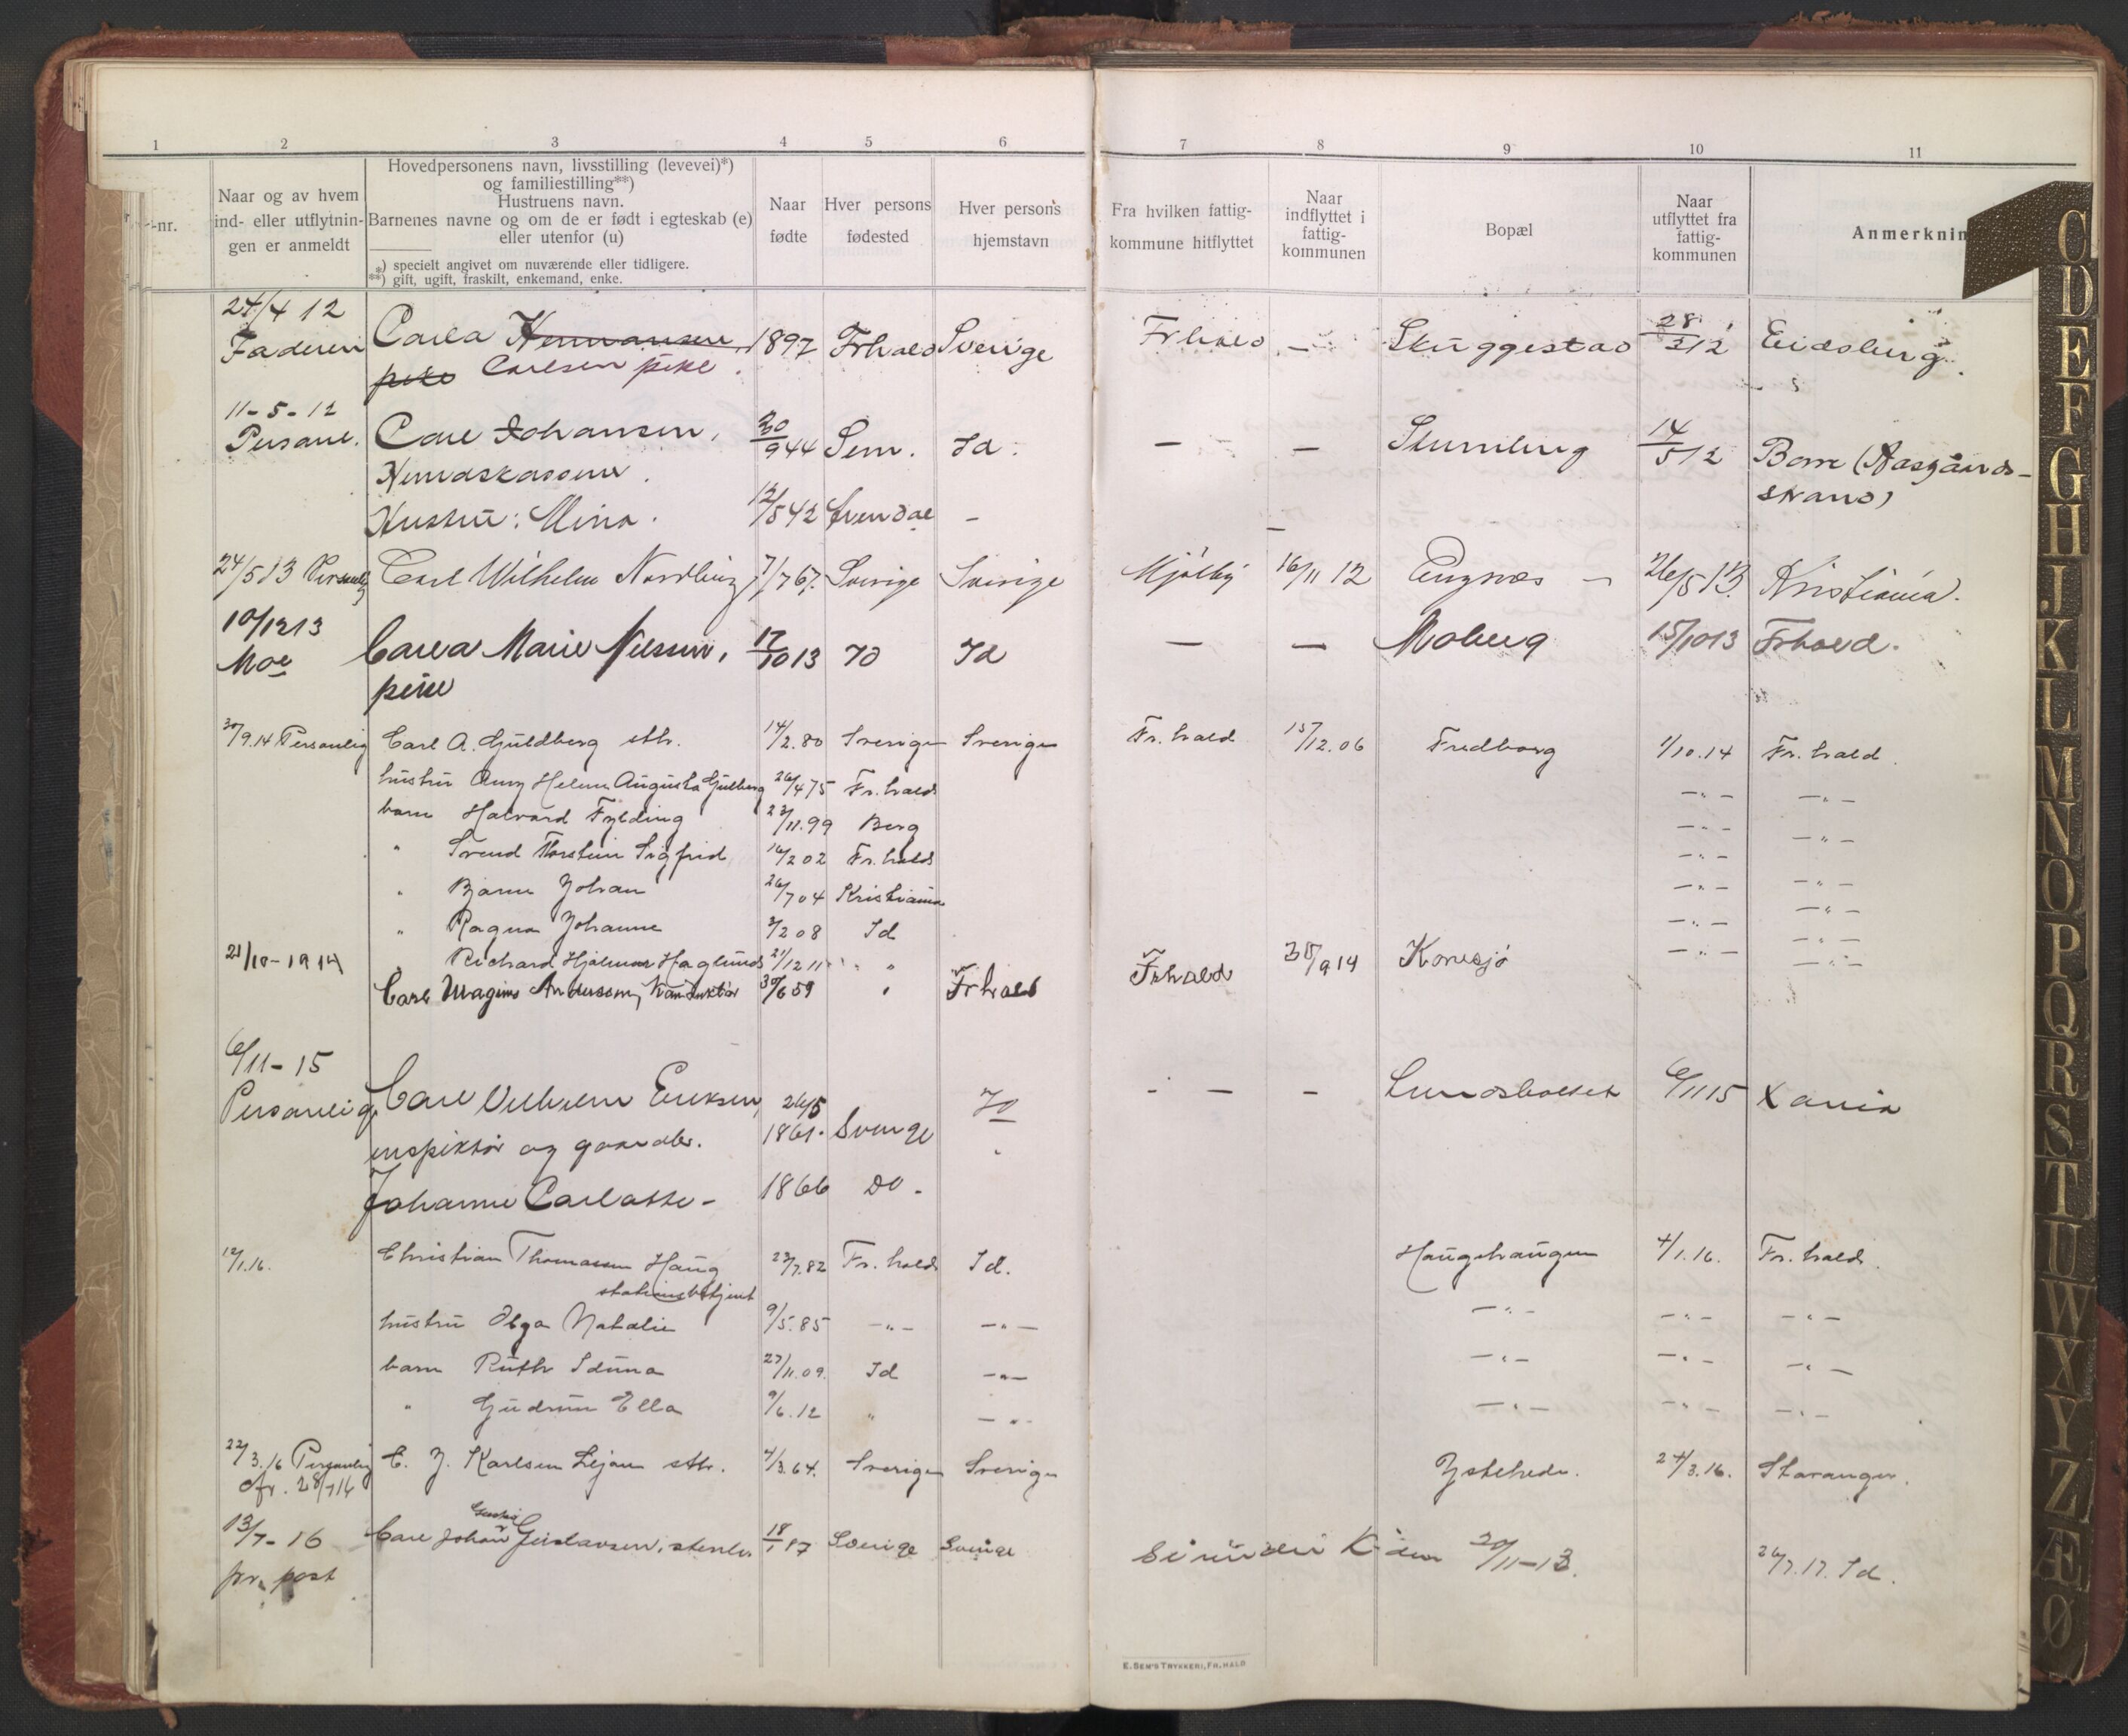 1 2 3 4 5 6 7 8 9 10 11
-nr.
Naar og av hvem ind- eller utflytnin- gen er anmeldt
Hovedpersonens navn, livsstilling (levevei)*)
og familiestilling**)
Hustruens navn.
Barnenes navne og om de er født i egteskab (e)
eller utenfor (u)
*) specielt angivet om nuværende eller tidligere.
**) gift, ugift, fraskilt, enkemand, enke.
Naar fødte
Hver persons fødested
Hver persons hjemstavn
Fra hvilken fattig-kommune hitflyttet
Naar indflyttet i fattig-kommunen
Bopæl
Naar utflyttet fra fattig-kommunen
Anmerknin
24/4 12
Faderen Carla Hermansen 1897 Frhald Sverige Frhald — Skuggestad 28/5 12 Eidsberg
pike Carlsen pike.
11-5-12
Personl. Carl Johansen, 30/9 44 Sem. Id. — — Stumberg 14/5 12 Borre (Aasgaards-
strand)
Hustru: Mina. 12/5 42 —
24/5 13 Personlig Carl Wilhelm Nordling 7/7 67. Sverige Sverige Mjölby 16/11 12 Engnæs — 26/5 13. Kristiania.
10/12 13
Moe Carla Marie Nilssen, 17/10 13 Id Id — — Moberg 15/10 13 Frhald.
pike
30/9.14 Personlig Carl A. Guldberg sth. 14/2.80 Sverige Sverige Fr.hald 15/12.06 Fredborg 1/10.14 Fr.hald.
hustru Anny Helene Augusta Gulberg 26/4 75 Fr.hald —"— —"—
barn Halvard Fylding 23/11.99 Berg —"— —"—
" Svend Thorstein Sigfrid 16/2 02 Fr.hald —"— —"—
" Bjarne Johan 26/7 04 Kristiania —"— —"—
" Ragna Johanne 3/2 08 Id —"— —"—
" Richard Hjalmar Haglund 21/12 11 " —"— —"—
21/10-1914 Carl Magnus Andersson, Konduktør 30/6 59 " Frhald Frhald 30/9 14 Kornsjø
6/11-15
Personlig Carl Vilhelm Eriksen, 26/5 Id — — — Lundsholtet 6/11 15 Xania
inspektør og gaardbr. 1861. Sverige "
Johanne Carlotte - 1866 Do.
12/1.16. Christian Thomassen Haug 23/7.82 Fr.hald Id. Haugehaugen 4/1.16. Fr.hald.
stationsbetjent
hustru Olga Natalie 9/5.85 —"— —"— —"— —"— —"—
barn Ruth Iduna 27/11.09. Id —"— —"— —"— —"—
" Gudrun Ella 9/6.12 " —"— —"— —"— —"—
22/3.16 Personlig C. J. Karlsen Lejon sth. 4/3.64. Sverige Sverige Ystehede. 24/3.16. Stavanger.
cfr. 28/7 16
13/7-16 Carl Johan Gustavsen, stenh. 18/1 87 Sverige Sverige Se under K 20/11-13. 26/7.17. Id.
pr. post
E. SEM'S TRYKKERI, FR.HALD
C
D
E
F
G
H
J
K
L
M
N
O
P
Q
R
S
T
U
W
X
Y
Z
Æ
Ø